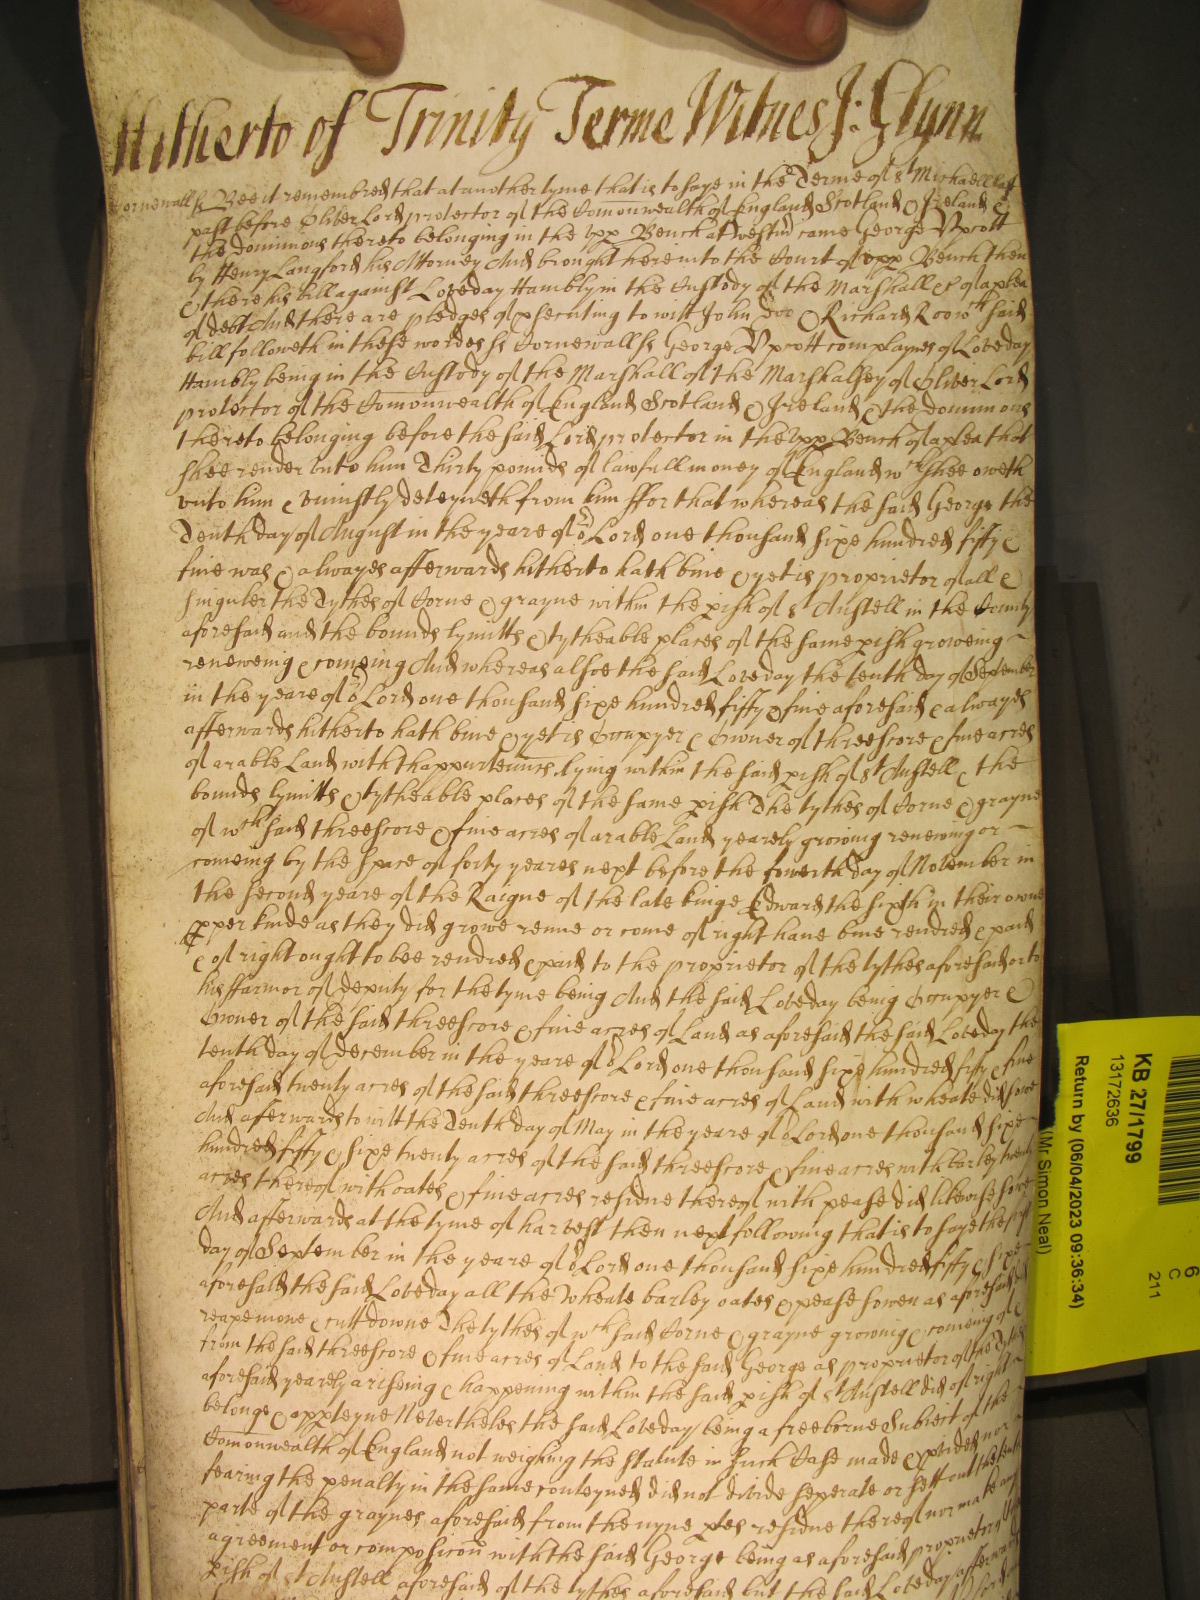 Hitherto of Trinity Terme Witnes J: Glynn
Cornewall ss Bee it remembred that at another tyme that is to saye in the Terme of St Michaell last
past before Oliver Lord protector of the Comonwealth of England Scotland & Ireland &
the dominions thereto belonging in the upp Bench at Westm came George Upcott
by Henry Langford his Attorney And brought here into the Court of upp Bench then
& there his bill against Loveday Hambly in the Custody of the Marshall &c of a plea
of debt And there are pledges of psecuting to witt John Doo & Richard Roo wch said
bill followeth in these wordes ss Cornewall ss George Upcott complaynes of Loveday
Hambly being in the Custody of the Marshall of the Marshalsey of Oliver Lord
protector of the Comonwealth of England Scotland & Ireland & the dominions
thereto belonging before the said Lord protector in the upp Bench of a plea that
shee render unto him Thirty pounds of lawfull money of England wch shee oweth
unto him & uniustly deteyneth from him ffor that whereas the said George the
Tenth day of August in the yeare of or Lord one thousand sixe hundred fifty &
five was & alwayes afterwards hitherto hath bine & yet is proprietor of all &
singuler the Tythes of Corne & grayne within the pish of St Austell in the County
aforesaid and the bounds lymitts & tytheable places of the same pish groweing
reneweing & comeing And whereas alsoe the said Loveday the tenth day of September
in the yeare of or Lord one thousand sixe hundred fifty & five aforesaid & alwayes
afterwards hitherto hath bine & yet is Occupyer & Owner of threescore & five acres
of arable Land with thappurtenncs lying within the said pish of St Austell & the
bounds lymitts & tytheable places of the same pish The tythes of Corne & grayne
of wch said threescore & five acres of arable Land yearely growing renewing or
comeing by the space of forty yeares next before the fowerth day of November in
the second yeare of the Raigne of the late kinge Edward the sixth in their owne
pper kinde as they did growe renue or come of right have bine rendred & paid
& of right ought to bee rendred & paid to the proprietor of the tythes aforesaid or to
his ffarmor or deputy for the tyme being And the said Loveday being Occupyer &
Owner of the said threescore & five acres of Land as aforesaid the said Loveday the
tenth day of December in the yeare of or Lord one thousand sixe hundred fifty & five
aforesaid twenty acres of the said threescore & five acres of Land with wheate did sowe
And afterwards to witt the Tenth day of May in the yeare of or Lord one thousand sixe
hundred fifty & sixe twenty acres of the said threescore & five acres with barley twenty
acres thereof with oates & five acres residue thereof with pease did likewise sowe
And afterwards at the tyme of harvest then next following that is to saye the
day of September in the yeare of or Lord one thousand sixe hundred fifty & sixe
aforesaid the said Loveday all the Wheate barley oates & pease sowen as aforesaid did
reape mowe & cutt downe The tythes of wch said Corne & grayne growing & comeing of &
from the said threescore & five acres of Land to the said George as proprietor of the Tythes
aforesaid yearely ariseing & happening within the said pish of St Austell did of right
belonge & appteyne Nevertheles the said Loveday being a freeborne Subiect of the
Comonwealth of England not weighing the statute in such Case made & pvided nor
fearing the penalty in the same conteyned did not divide seperate or sett out the tenth
parte of the graynes aforesaid from the nyne ptes residue thereof nor make any
agreement or composicon with the said George being as aforesaid proprietor
pish of St Austell aforesaid of the tythes aforesaid but the said Loveday afterwards
KB 27/1799
13172636
Return by (06/04/2023 09:36:34)
(Mr Simon Neal)
6
C
211